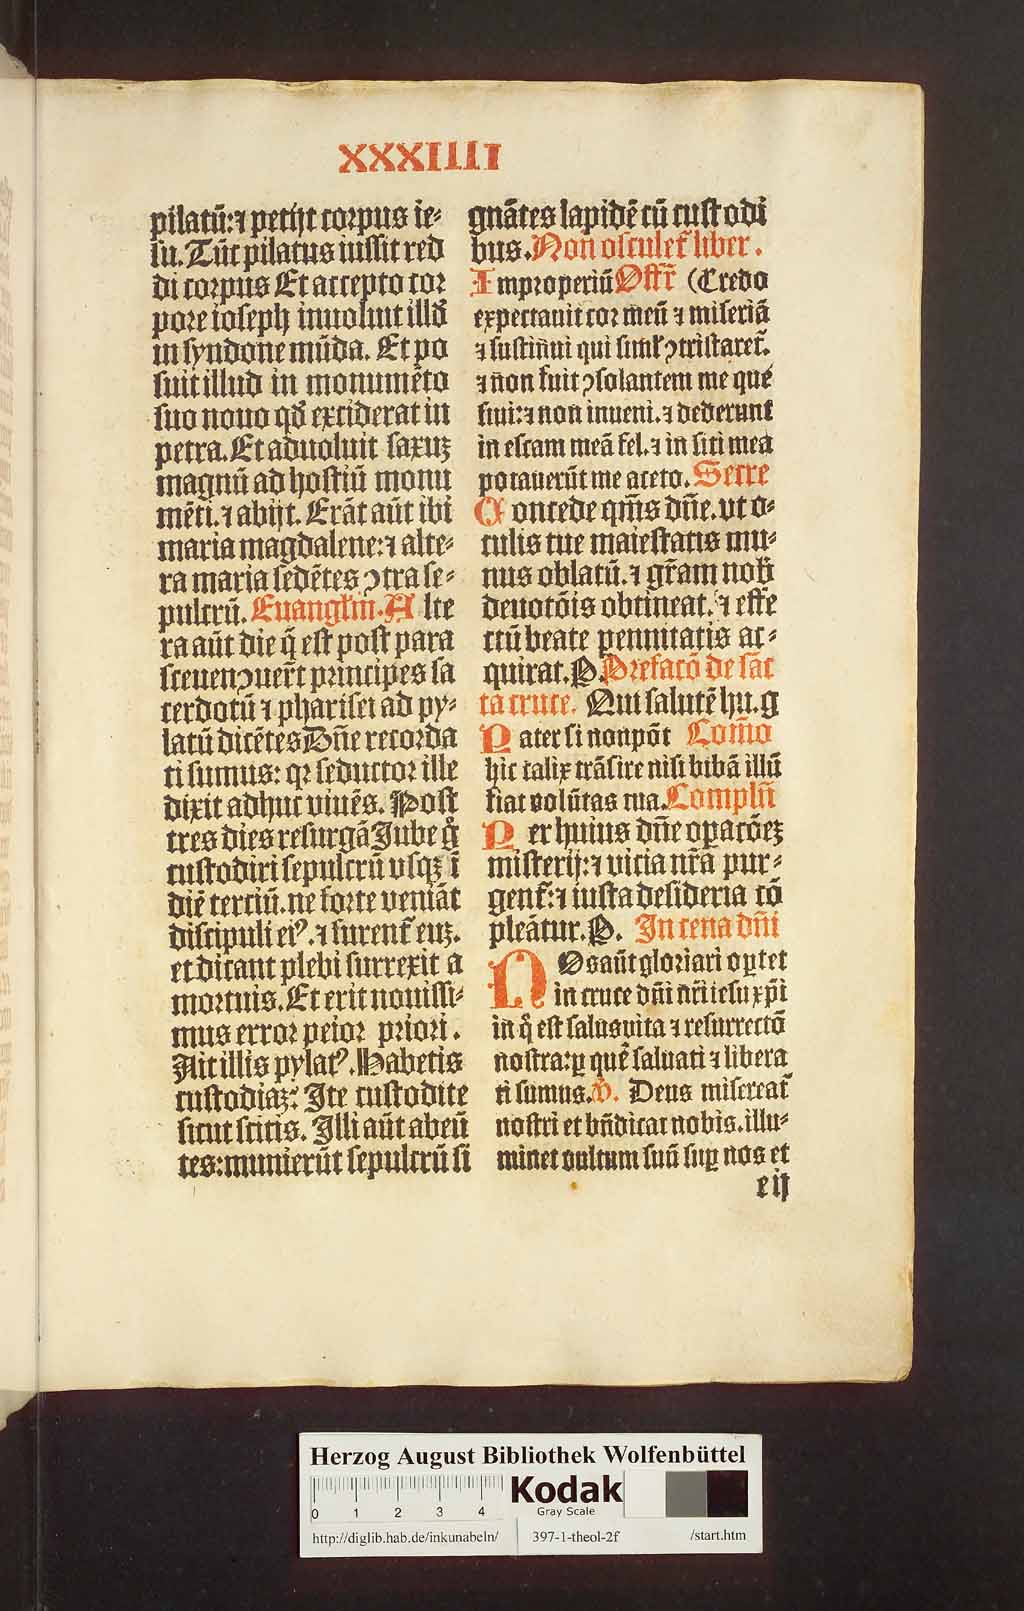 XXXIIII
pilatū:⁊ petijt corpus ie⸗
su. Tūc pilatus iussit red
di corpus Et accepto cor
pore ioseph inuoluit illd̄
in syndone mūda. Et po
suit illud in monumēto
suo nouo qd̄ exciderat in
petra. Et aduoluit saxuꝫ
magnū ad hostiū monu
mēti. ⁊ abijt. Erāt aūt ibi
maria magdalene:⁊ alte⸗
ra maria sedētes ↄtra se⸗
pulcrū. Euangliū. A lte
ra aūt die q̄ est post para
sceuen ↄuer̄t principes sa
cerdotū ⁊ pharisei ad py⸗
latū dicētes Dn̄e recorda
ti sumus: qꝛ seductor ille
dixit adhuc viuēs. Post
tres dies resurgā Jube g̊
custodiri sepulcrū vsqꝫ ī
diē terciū. ne forte veniāt
discipuli eiꝰ. ⁊ furent̄ euꝫ.
et dicant plebi surrexit a
mortuis. Et erit nouissi⸗
mus error peior priori.
Ait illis pylatꝰ. Habetis
custodiaꝫ. Ite custodite
sicut scitis. Illi aūt abeū
tes: munierūt sepulcrū si
gnātes lapidē cū custodi
bus. Non osculet̄ liber.
I mproperiū Offr̄ (Credo
expectauit cor meū ⁊ miseriā
⁊ sustinui qui simul ↄtristaret̄.
⁊ non fuit ↄsolantem me que
siui:⁊ non inueni. ⁊ dederunt
in escam meā fel. ⁊ in siti mea
potauerūt me aceto. Secre
C oncede qm̄s dn̄e. vt o⸗
culis tue maiestatis mu⸗
nus oblatū. ⁊ gr̄am nob̄
deuotōis obtineat. ⁊ effe
ctū beate pennitatis ac⸗
quirat. P. Prefatō de sāc
ta cruce. Qui salutē hu. g
P ater si non pōt Com̄o
hic calix trāsire nisi bibā illū
fiat volūtas tua. Compln̄
P er huius dn̄e oꝑacōeꝫ
misterij:⁊ vicia nr̄a pur⸗
gent̄:⁊ iusta desideria cō
pleātur. P. In cena dn̄i
N Os aūt gloriari oꝑtet
in cruce dn̄i nr̄i iesu xp̄i
in q̊ est salus vita ⁊ resurrectō
nostra:ꝑ quē saluati ⁊ libera
ti sumus. V̄. Deus misereat̄
nostri et bn̄dicat nobis. illu⸗
minet vultum suū suꝑ nos et
e ij
Herzog August Bibliothek Wolfenbüttel
0 1 2 3 4
Kodak
Gray Scale
http://diglib.hab.de/inkunabeln/ 397-1-theol-2f /start.htm